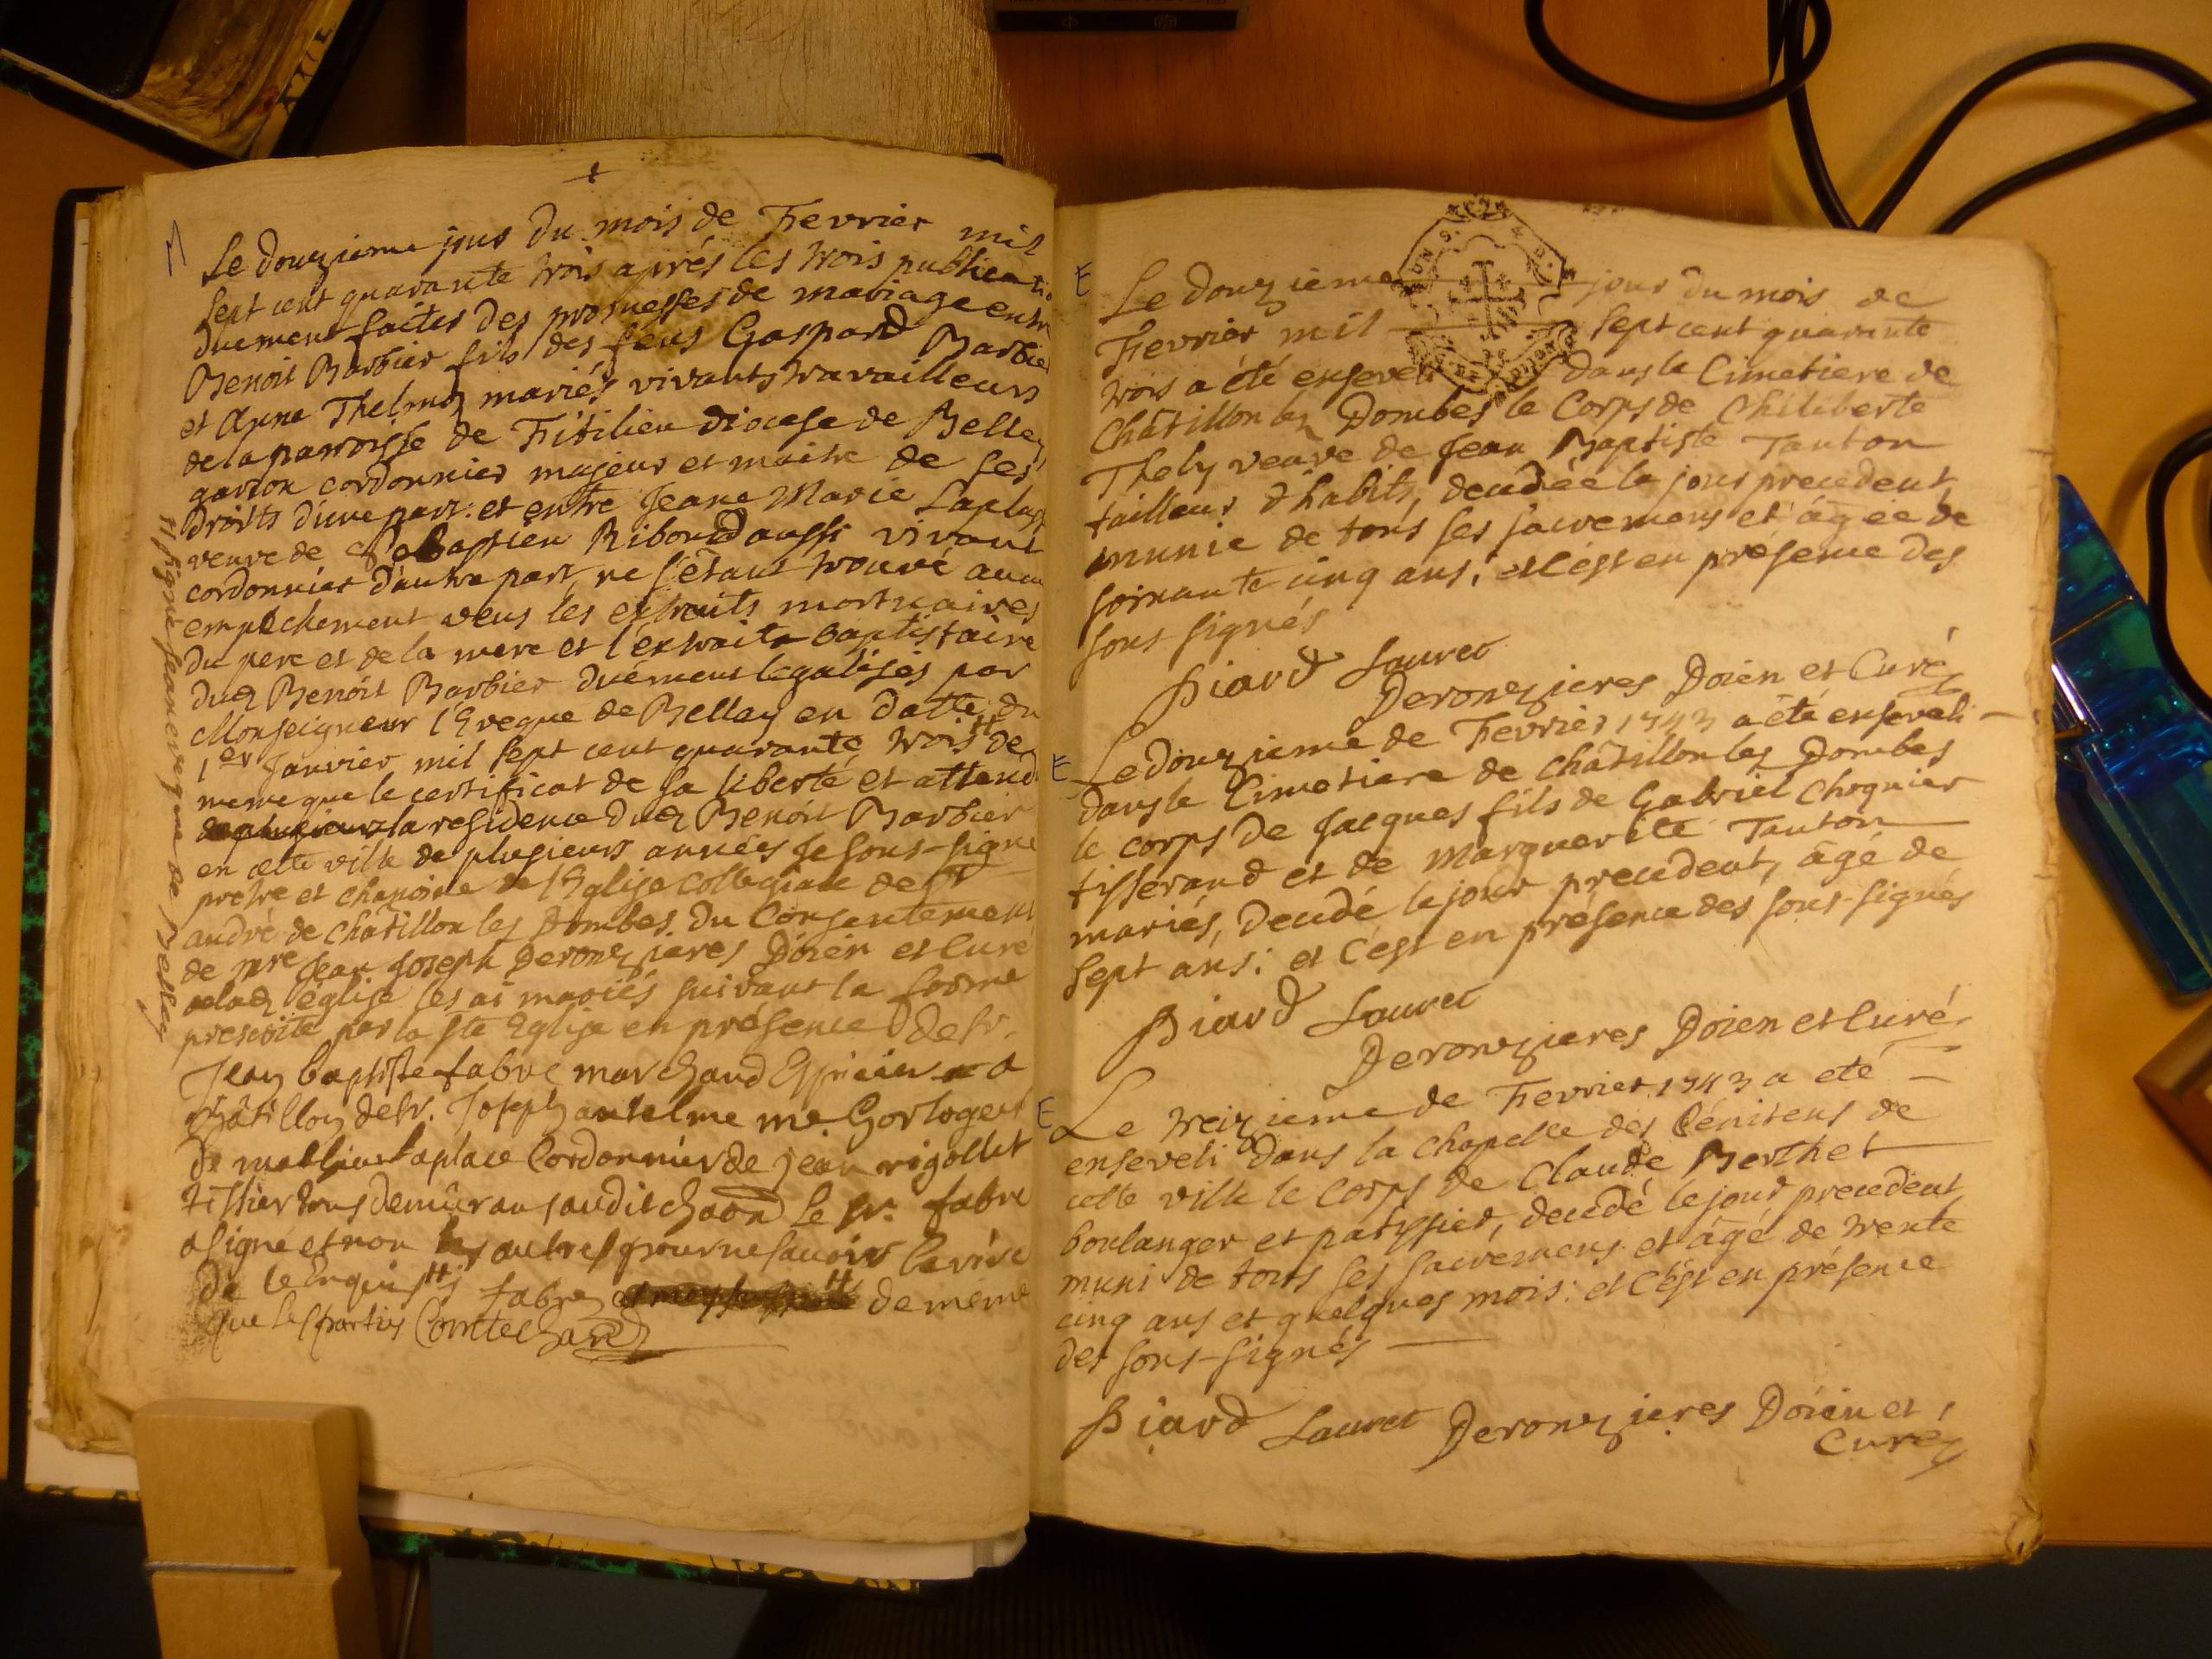 M
Le douzieme jour du mois de Fevrier mil
sept cent quarante trois aprés les trois publicatio
duement faites des promesses de mariage entre
Benoit Barbier fils des feus Gaspard Barbier
et Anne Thelmoz mariés vivants travailleurs
de la parroisse de Fitilieu diocese de Belley
garson cordonnier majeur et maitre de ses
droits d'une part: et entre Jeane Marie Laplace
veuve de Sebastien Riboud aussi vivant
cordonnier d'autre part, ne s'étant trouvé aucun
empêchement veus les extraits mortuaires
du pere et de la mere et l'extrait baptistaire
dud Benoit Barbier duëment legalisés par
Monseigneur l'Eveque de Belley en datte du
1er Janvier mil sept cent quarante trois # de
meme que le certificat de sa liberté et attend
la residence dud Benoit Barbier
en cette ville de plusieurs années Je sous-signé
pretre et chanoine de l'Eglise collegiale de St
andré de châtillon les Dombes, du Consentement
de mre Jean Joseph Deronzieres Doien et Curé
de lad église les ai mariés suivant la forme
prescrite par la Ste Eglise en présence de Sr.
Jean baptiste fabre marchand Espicier a
châtillon de Sr. Joseph antelme me horloger
de mathieu laplace Cordonnier de jean rigollet
tissier tous demeurans audit chaon le Sr. fabre
a signé et non les autres pour ne savoir lecrire
de ce Enquis # fabre # de meme
que les parties Comte chan
# signé jean eveque de Belley
E
Le douzieme jour du mois de
Fevrier mil sept cent quarante
trois a été enseveli dans le Cimetiere de
Châtillon les Dombes le Corps de Philiberte
Thely veuve de Jean Baptiste Tanton
tailleur d'habits, decedée le jour precedent
munie de tous ses sacremens et âgée de
soixante cinq ans; et c'est en présence des
sous signés
Biard Lauret
Deronzieres Doien et Curé
E
Le douzieme de Fevrier 1743 a été enseveli
dans le Cimetiere de châtillon les Dombes
le corps de Jacques fils de Gabriel Chognier
tisserand et de Marguerite Tanton
mariés, decedé le jour precedent, âgé de
sept ans: et c'est en présence des sous-signés
Biard Lauret
Deronzieres Doien et Curé
E
Le treizieme de Fevrier 1743 a eté
enseveli dans la chapelle des Pénitens de
cette ville le Corps de Claude Berthet
boulanger et patissier, decedé le jour precedent
muni de tous ses sacremens et âgé de trente
cinq ans et quelques mois: et c'est en présence
des sous-signés
Biard Lauret Deronzieres Doien et
Curé